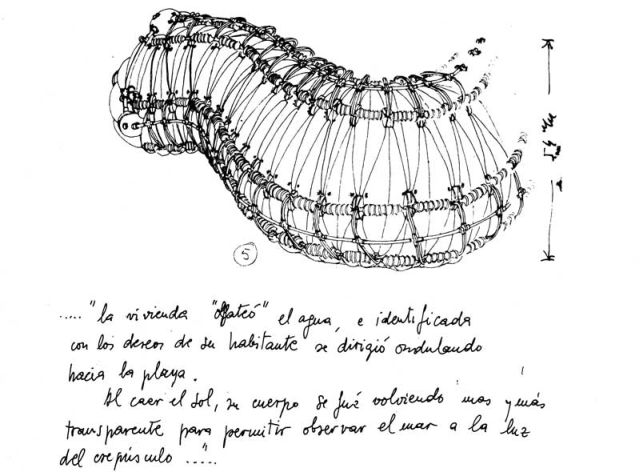 5
....." la vivienda "olfateó" el agua, e identificada
con los deseos de su habitante se dirigió ondulando
hacia la playa.
Al caer el sol, su cuerpo se fué volviendo mas y más
transparente para permitir observar el mar a la luz
del crepúsculo ....."